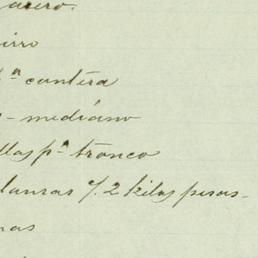 acero.
irro
pª cantéra
- mediáno
llas pª tronco
lanzas /. 2 kilos pesas-
nas